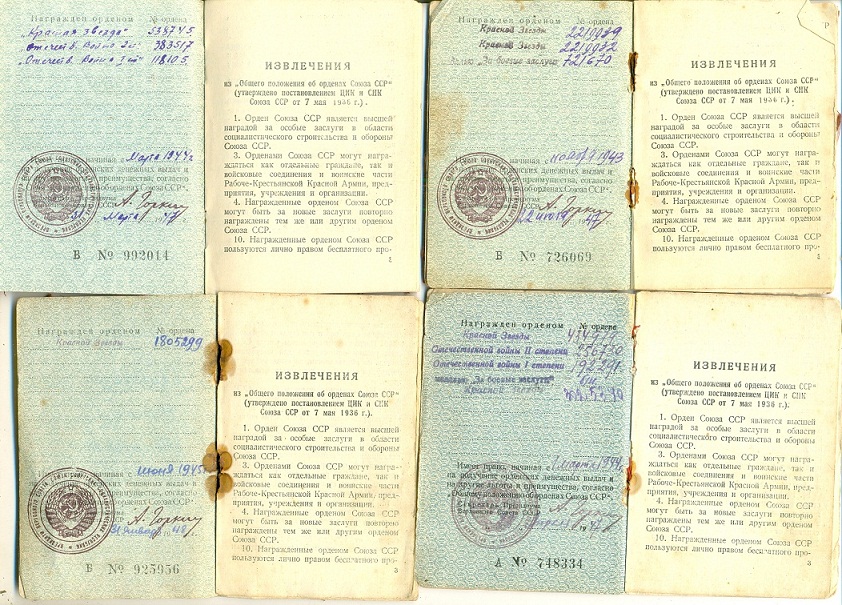 Награжден орденом № ордена
„Красная звезда" 538745
„Отечеств. Война 2ст" 383517
„Отечеств. Война 1ст" 118105
начиная с Марта 1944 г.
денежных выдач и
преимущества, согласно
об орденах Союза ССР".
А. Горкин
31 Марта 47 г.
В № 992014
ИЗВЛЕЧЕНИЯ
из „Общего положения об орденах Союза ССР"
(утверждено постановлением ЦИК и СНК
Союза ССР от 7 мая 1936 г.).
1. Орден Союза ССР является высшей
наградой за особые заслуги в области
социалистического строительства и обороны
Союза ССР.
3. Орденами Союза ССР могут награ-
ждаться как отдельные граждане, так и
войсковые соединения и воинские части
Рабоче-Крестьянской Красной Армии, пред-
приятия, учреждения и организации.
4. Награжденные орденом Союза ССР
могут быть за новые заслуги повторно
награждены тем же или другим орденом
Союза ССР.
10. Награжденные орденом Союза ССР
пользуются лично правом бесплатного про-
3
Награжден орденом № ордена
Красной Звезды 2219939
Красной Звезды 2219932
„За боевые заслуги" 721670
начиная с ноября 1943
денежных выдач и
преимущества, согласно
об орденах Союза ССР".
А. Горкин
22 июля 47
В № 726069
ИЗВЛЕЧЕНИЯ
из „Общего положения об орденах Союза ССР"
(утверждено постановлением ЦИК и СНК
Союза ССР от 7 мая 1936 г.).
1. Орден Союза ССР является высшей
наградой за особые заслуги в области
социалистического строительства и обороны
Союза ССР.
3. Орденами Союза ССР могут награ-
ждаться как отдельные граждане, так и
войсковые соединения и воинские части
Рабоче-Крестьянской Красной Армии, пред-
приятия, учреждения и организации.
4. Награжденные орденом Союза ССР
могут быть за новые заслуги повторно
награждены тем же или другим орденом
Союза ССР.
10. Награжденные орденом Союза ССР
пользуются лично правом бесплатного про-
3
Награжден орденом № ордена
Красной Звезды 1805299
начиная с июня 1945 г.
денежных выдач и
преимущества, согласно
об орденах Союза ССР".
А. Горкин
31 января 48
В № 925956
ИЗВЛЕЧЕНИЯ
из „Общего положения об орденах Союза ССР"
(утверждено постановлением ЦИК и СНК
Союза ССР от 7 мая 1936 г.).
1. Орден Союза ССР является высшей
наградой за особые заслуги в области
социалистического строительства и обороны
Союза ССР.
3. Орденами Союза ССР могут награ-
ждаться как отдельные граждане, так и
войсковые соединения и воинские части
Рабоче-Крестьянской Красной Армии, пред-
приятия, учреждения и организации.
4. Награжденные орденом Союза ССР
могут быть за новые заслуги повторно
награждены тем же или другим орденом
Союза ССР.
10. Награжденные орденом Союза ССР
пользуются лично правом бесплатного про-
3
Награжден орденом № ордена
Красной Звезды
Отечественной войны II степени
Отечественной войны I степени
медалью „За боевые заслуги" б/н.
Имеет право, начиная с 1 марта 1944,
на получение орденских денежных выдач и
на другие льготы и преимущества, согласно
„Общему положению об орденах Союза ССР".
Секретарь Президиума
А № 748334
ИЗВЛЕЧЕНИЯ
из „Общего положения об орденах Союза ССР"
(утверждено постановлением ЦИК и СНК
Союза ССР от 7 мая 1936 г.).
1. Орден Союза ССР является высшей
наградой за особые заслуги в области
социалистического строительства и обороны
Союза ССР.
3. Орденами Союза ССР могут награ-
ждаться как отдельные граждане, так и
войсковые соединения и воинские части
Рабоче-Крестьянской Красной Армии, пред-
приятия, учреждения и организации.
4. Награжденные орденом Союза ССР
могут быть за новые заслуги повторно
награждены тем же или другим орденом
Союза ССР.
10. Награжденные орденом Союза ССР
пользуются лично правом бесплатного про-
3